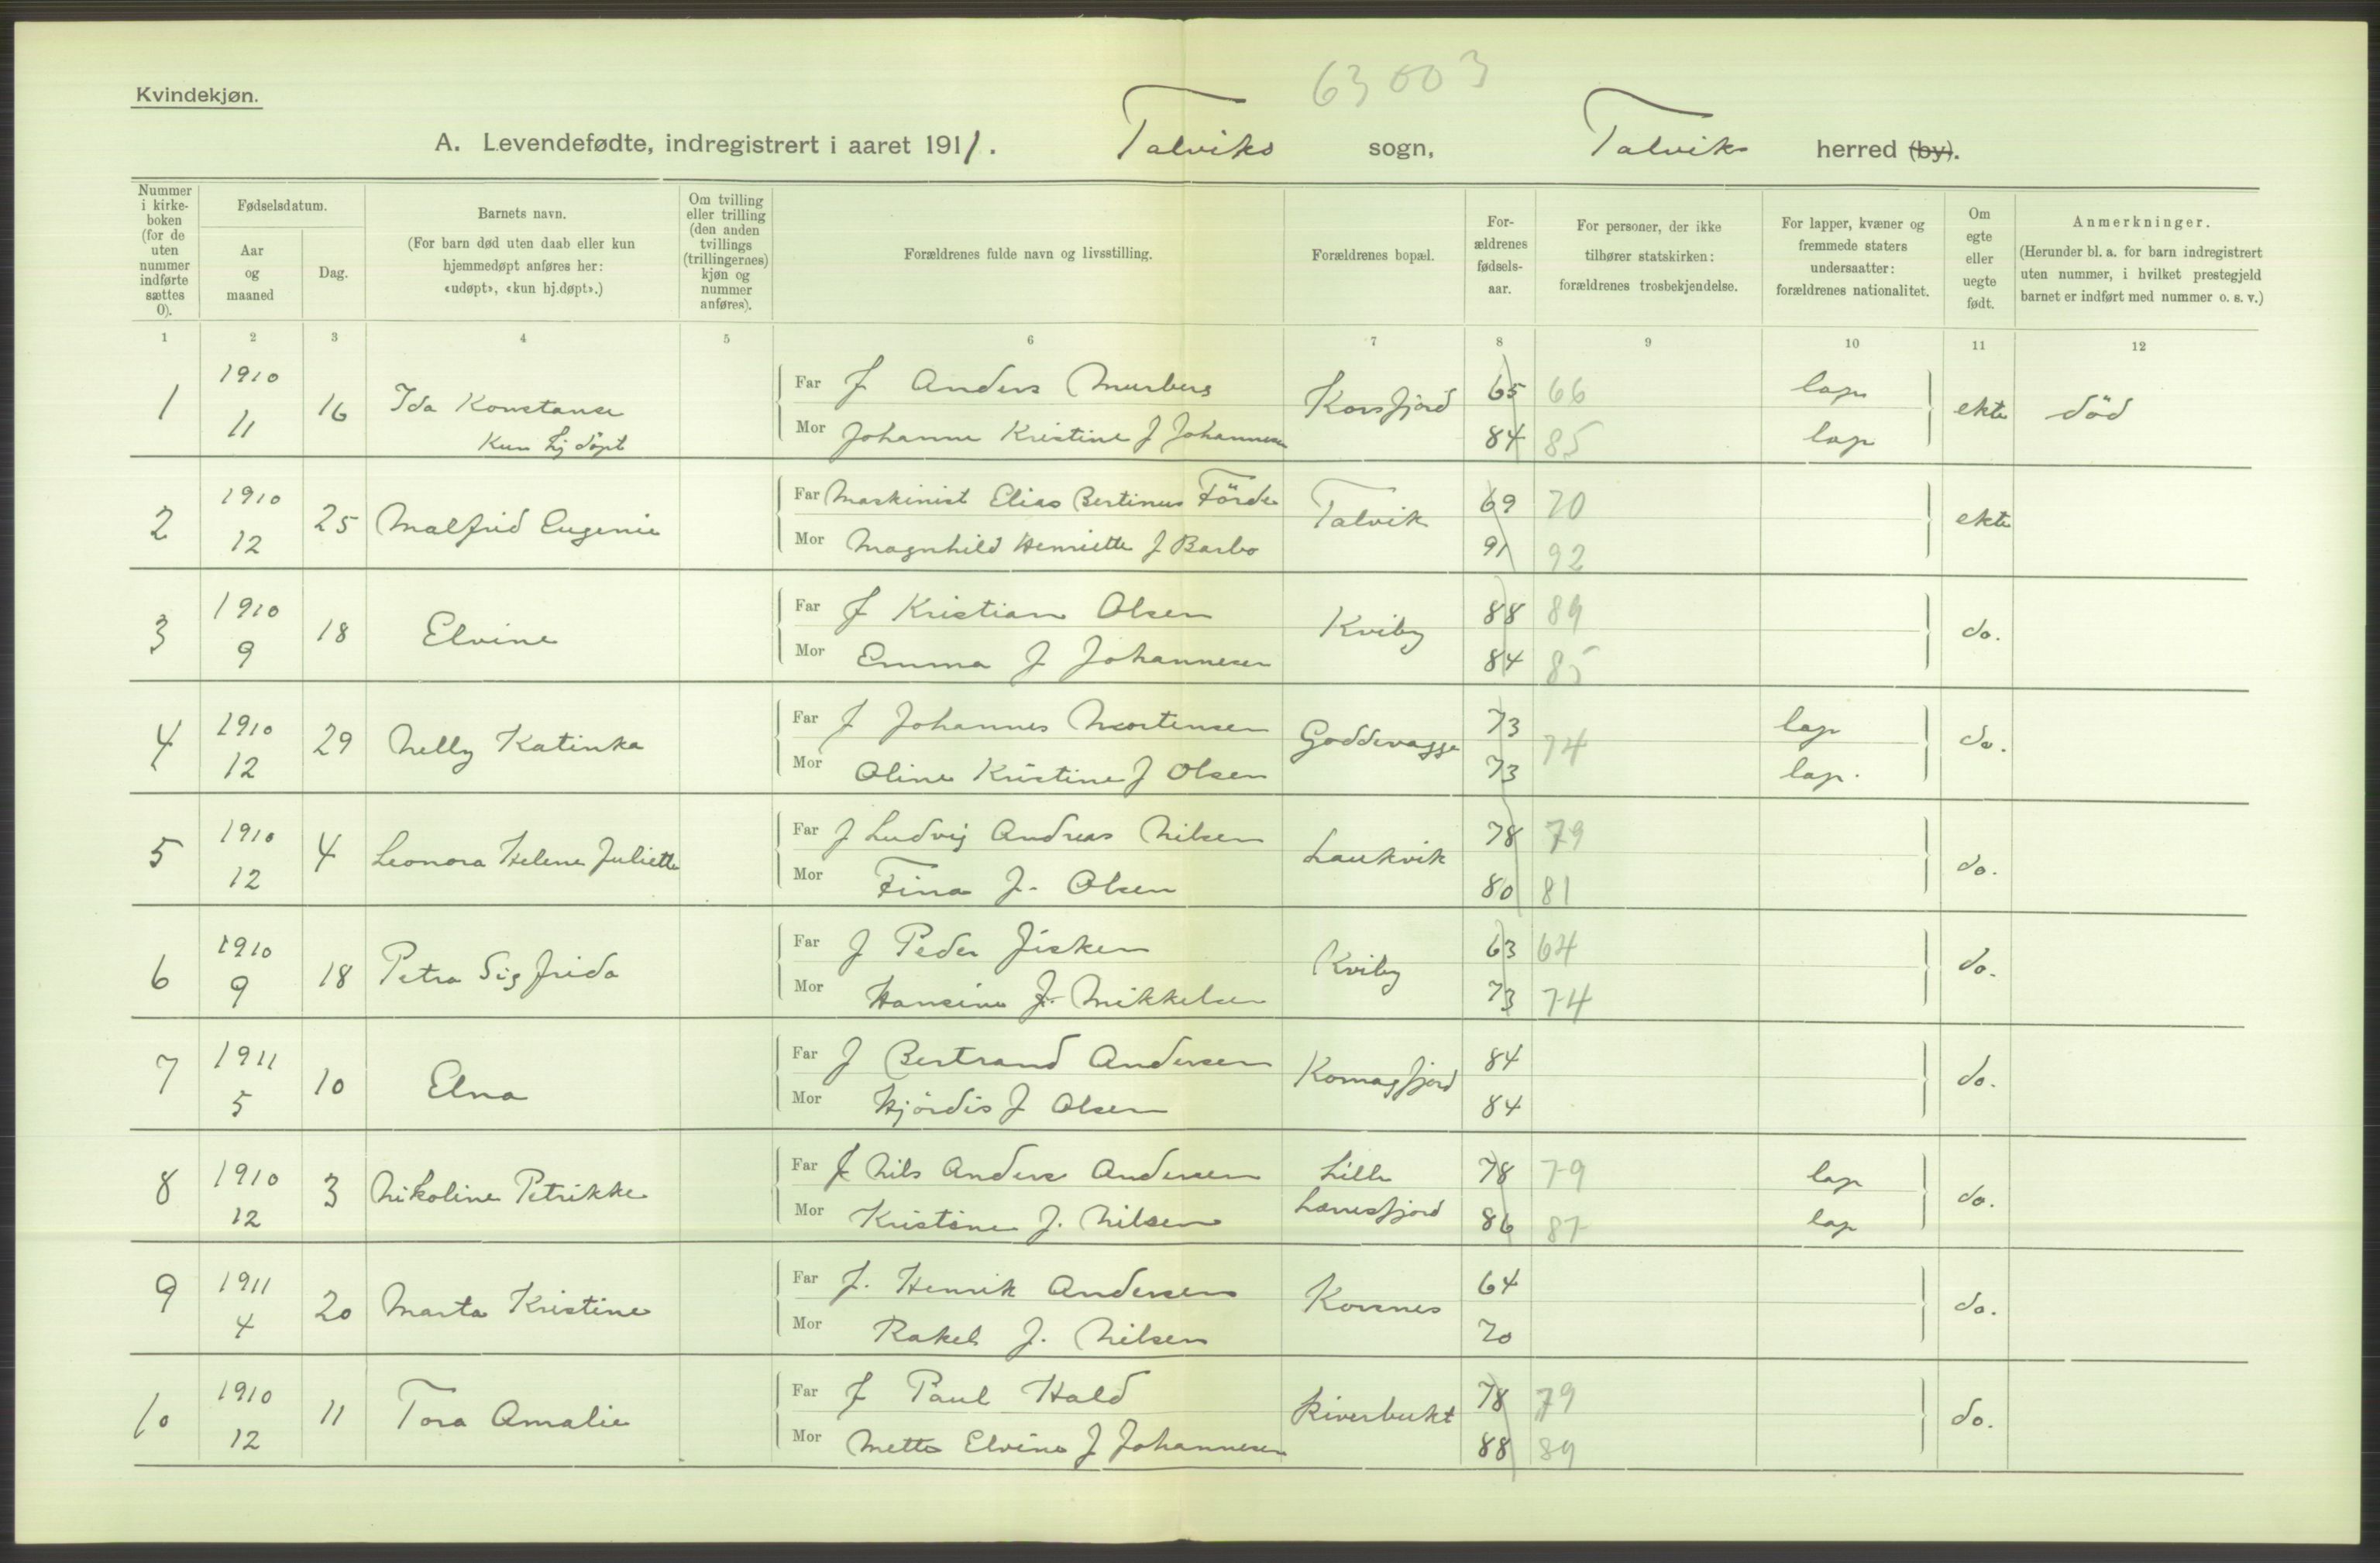 63003
Kvindekjøn.
A. Levendefødte, indregistrert i aaret 1911. Talviks sogn, Talvik herred (by).
Nummer i kirkeboken (for de uten nummer indførte sættes 0).
Fødselsdatum.
Aar og maaned
Dag.
Barnets navn.
(For barn død uten daab eller kun hjemmedøpt anføres her: «udøpt», «kun hj.døpt».)
Om tvilling eller trilling (den anden tvillings (trillingernes) kjøn og nummer anføres).
Forældrenes fulde navn og livsstilling.
Forældrenes bopæl.
Forældrenes fødselsaar.
For personer, der ikke tilhører statskirken: forældrenes trosbekjendelse.
For lapper, kvæner og fremmede staters undersaatter: forældrenes nationalitet.
Om egte eller uegte født.
Anmerkninger.
(Herunder bl. a. for barn indregistrert uten nummer, i hvilket prestegjeld barnet er indført med nummer o. s. v.)
1 2 3 4 5 6 7 8 9 10 11 12
1 1910 11 16 Ida Konstanse Kun hj døpt
Far F Anders Murberg Korsfjord 65 66 lap ekte död
Mor Johanne Kristine F Johannesen 84 85 lap
2 1910 12 25 Malfrid Eugenie
Far Maskinist Elias Bertinus Förde Talvik 69 70 ekte
Mor Magnhild Henriette f Barbo 91 92
3 1910 9 18 Elvine
Far F Kristian Olsen Kviby 88 89 do.
Mor Emma F Johannesen 84 85
4 1910 12 29 Nelly Katinka
Far F Johannes Mortensen Goddevagge 73 74 lap do.
Mor Oline Kristine F Olsen 73 lap.
5 1910 12 4 Leonora Helene Juliette
Far F Ludvig Andreas Nilsen Laukvik 78 79 do.
Mor Fina F. Olsen 80 81
6 1910 9 18 Petra Sigfrida
Far F Peder Fisken Kviby 63 64 do.
Mor Hansine F. Mikkelsen 73 74
7 1911 5 10 Elna
Far F Bertrand Andersen Komagfjord 84 do.
Mor Hjördis F Olsen 84
8 1910 12 3 Nikoline Petrikke
Far F Nils Anders Andersen Lille Lerresfjord 78 79 lap do.
Mor Kristine F. Nilsen 86 87 lap
9 1911 4 20 Marta Kristine
Far F. Henrik Andersen Korsnes 64 do.
Mor Rakel F. Nilsen 70
10 1910 12 11 Tora Amalie
Far F Paul Hald Riverbukt 78 79 do.
Mor Mette Elvine F Johannesen 88 89